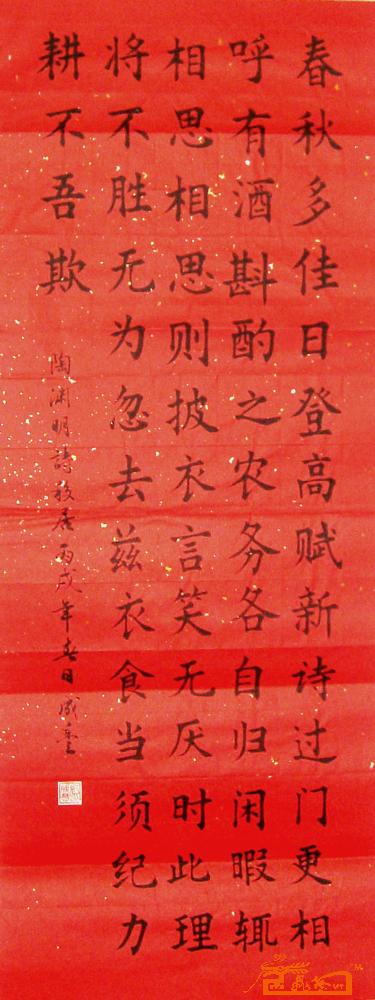 春秋多佳日登高赋新诗过门更相
呼有酒斟酌之农务各自归闲暇辄
相思相思则披衣言笑无厌时此理
将不胜无为忽去兹衣食当须纪力
耕不吾欺
陶渊明詩移居丙戌年春日